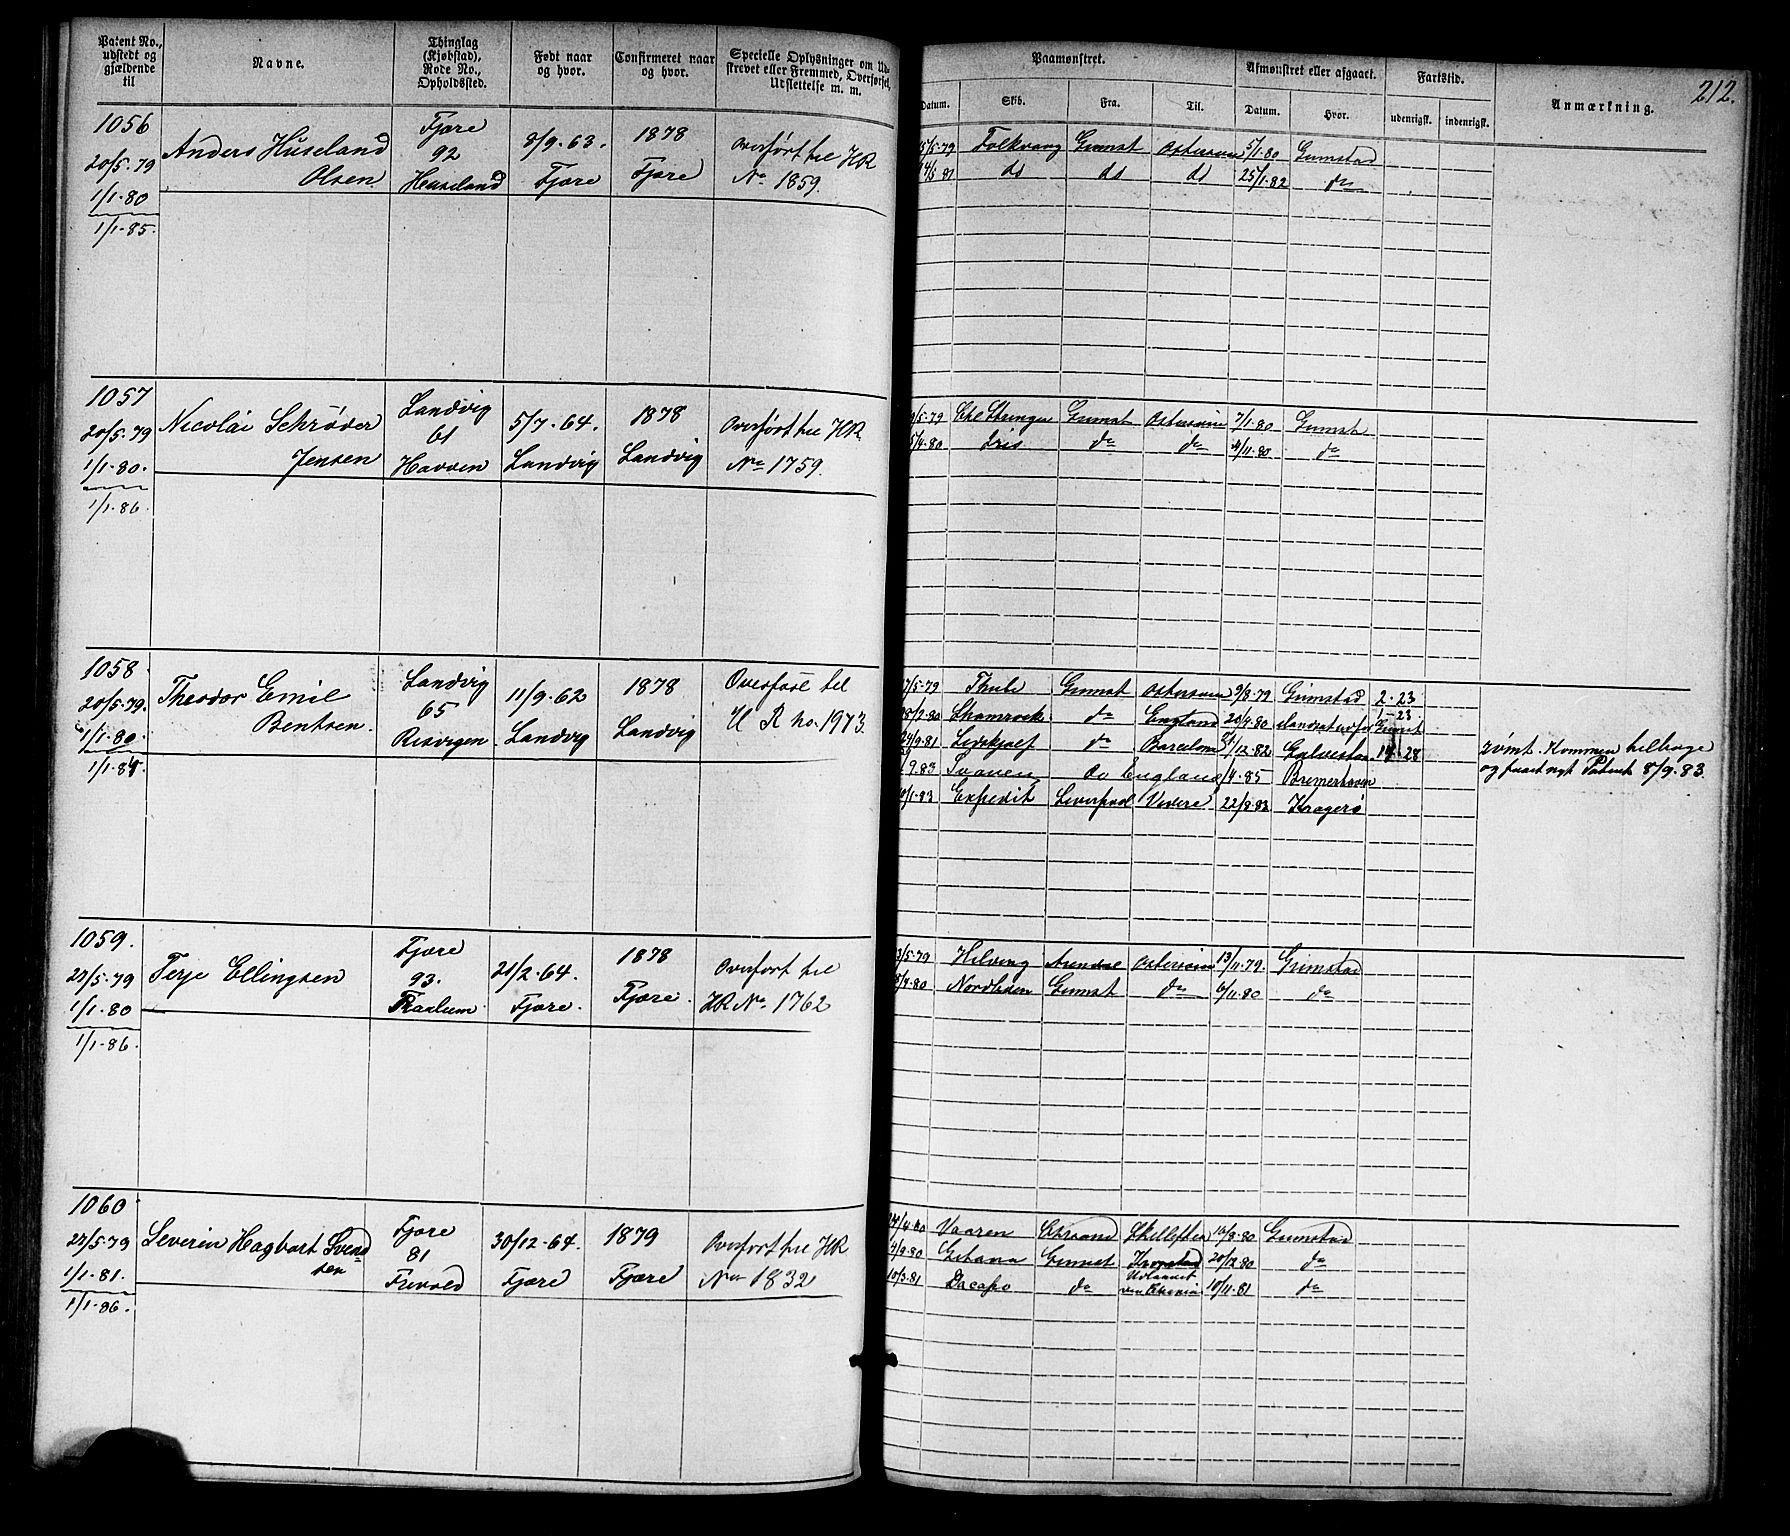 212.
Patent No., udstedt og gjældende til
Navne.
Thinglag (Kjøbstad), Rode No., Opholdssted.
Født naar og hvor.
Confirmeret naar og hvor.
Specielle Oplysninger om Udskrevet eller Fremmed, Overførsel, Udslettelse m. m.
Paamønstret.
Datum.
Skib.
Fra.
Til.
Afmønstret eller afgaaet.
Datum.
Hvor.
Fartstid.
udenrigsk.
indenrigsk.
Anmærkning.
1056
20/5-79
1/1-80
1/1-85.
Anders Huseland
Olsen
Fjære
92
Huseland
8/9-63.
Fjære
1878
Fjære
Overført til HR
No 1859.
5/5-79 Folkvang Grimst Østersøen 5/1-80 Grimstad
14/5 81 do do do 25/1-82 do
1057
20/5-79
1/1-80.
1/1-86.
Nicolai Schrøder
Jensen
Landvig
61
Havven
5/7-64.
Landvig
1878
Landvig
Overført til HR
No 1759.
9/5-79 Grimst Østersøen 7/1-80 Grimst
5/4-80 Iris do do 4/11-80 do
1058
20/5-79.
1/1-80.
1/1-84
Theodor Emil
Bentsen
Landvig
65
Resvigen
11/9-62
Landvig
1878
Landvig
Overført til
H R no. 1973.
7/5-79 Thule Grimst Østersøen 9/8-79 Grimstad 2-23
28/2-80 Shamrock do England 20/9-80 Grimst 1-23
24/9-81 Lidskjalf do Barcelona 12-82 Galveston 14-28
9.83 Svanen do England /4-85 Bremerhaven
10/1-83 Expedit Liverpool 22/8-83 Kragerø
rømt. Kommen tilbage
og faaet nyt Patent 8/9-83.
1059.
23/5-79
1/1-80
1/1-86.
Terje Ellingsen
Fjære
93.
21/2-64.
Fjære.
1878
Fjære.
Overført til
HR No. 1762
3/5-79 Arendal Østersøen 13/11-79. Grimstad
8/4-80 Grimst do 6/11-80 do
1060
23/5-79
1/1-81.
1/1-86.
Severin Hagbart Svend
sen
Fjære
81
Frivold
30/12-64.
Fjære
1879
Fjære
Overført til HR
No 1832
24/4-80 Vaaren Chrsand Skellefteå 14/8-80 Grimstad
4/9-80 Gitana Grimst Kronstad 20/12-80 do
10/3-81 Dacapo do 10/11-81 do